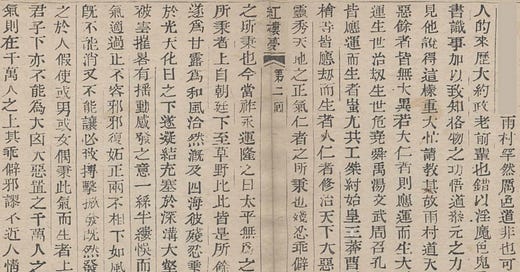 雨村罕然厲色道非也可
人的來歷大約政老前輩也錯以淫魔色鬼
書識事加以致知格物之功悟道叅元之力
見他說得這樣重大忙請教其故雨村道天
惡餘者皆無大異若大仁者則應運而生大
運生世治刼生世危堯舜禹湯文武周召孔
皆應運而生者蚩尤共工桀紂始皇王莽曹
檜等皆應刼而生者大仁者修治天下大惡
靈秀天地之正氣仁者之所秉也殘忍乖僻
紅樓夢 第二回
之所秉也今當祚永運隆之日太平無為之
所秉者上自朝廷下至草野比比皆是所餘
遂為甘露為和風洽然溉及四海彼殘忍乖
於光天化日之下遂凝結充塞於深溝大壑
被雲摧畧有搖動感發之意一絲半縷悮而
氣適過正不容邪邪復妬正兩不相下如風
旣不能消又不能讓必致搏擊掀發旣然發
之於人假使或男或女偶秉此氣而生者上
君子下亦不能為大凶大惡置之千萬人之
氣則在千萬人之上其乖僻邪謬不近人情